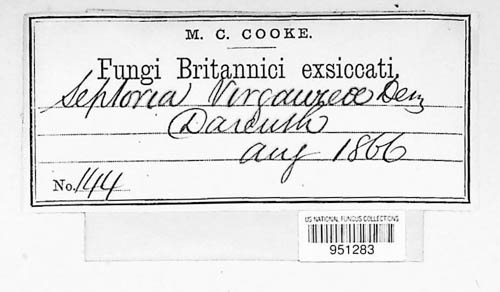 M. C. COOKE.
Fungi Britannici exsiccati.
Septoria Virgaureæ Desz
Darenth
Aug 1866
No. 144
US NATIONAL FUNGUS COLLECTIONS
951283